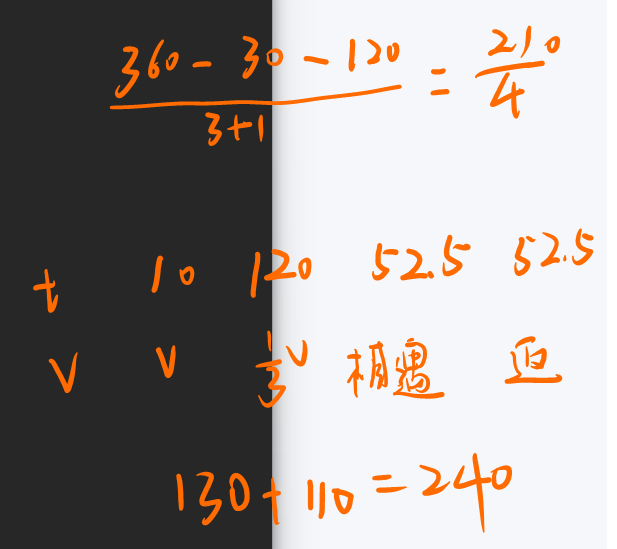 360 - 30 - 120 / 3+1 = 210 / 4
t 10 120 52.5 52.5
V V 1/3 V 相遇
130 + 110 = 240